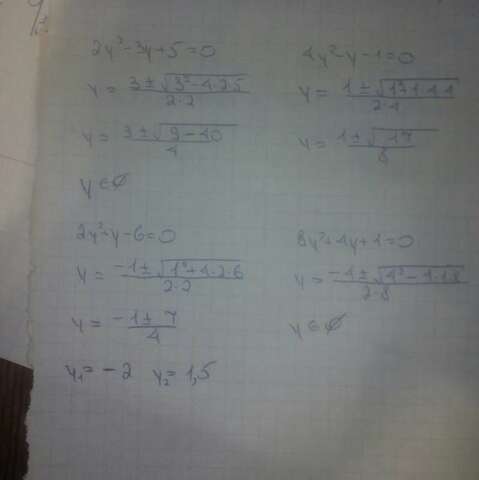 2y²-3y+5=0
y = (3±√(3²-4·2·5))/(2·2)
y = (3±√(9-40))/4
y∈∅
4y²-y-1=0
y = (1±√(1²+4·4))/(2·4)
y = (1±√17)/8
2y²+y-6=0
y = (-1±√(1²+4·2·6))/(2·2)
y = (-1±7)/4
y₁=-2 y₂=1,5
8y²+4y+1=0
y = (-4±√(4²-4·1·8))/(2·8)
y∈∅